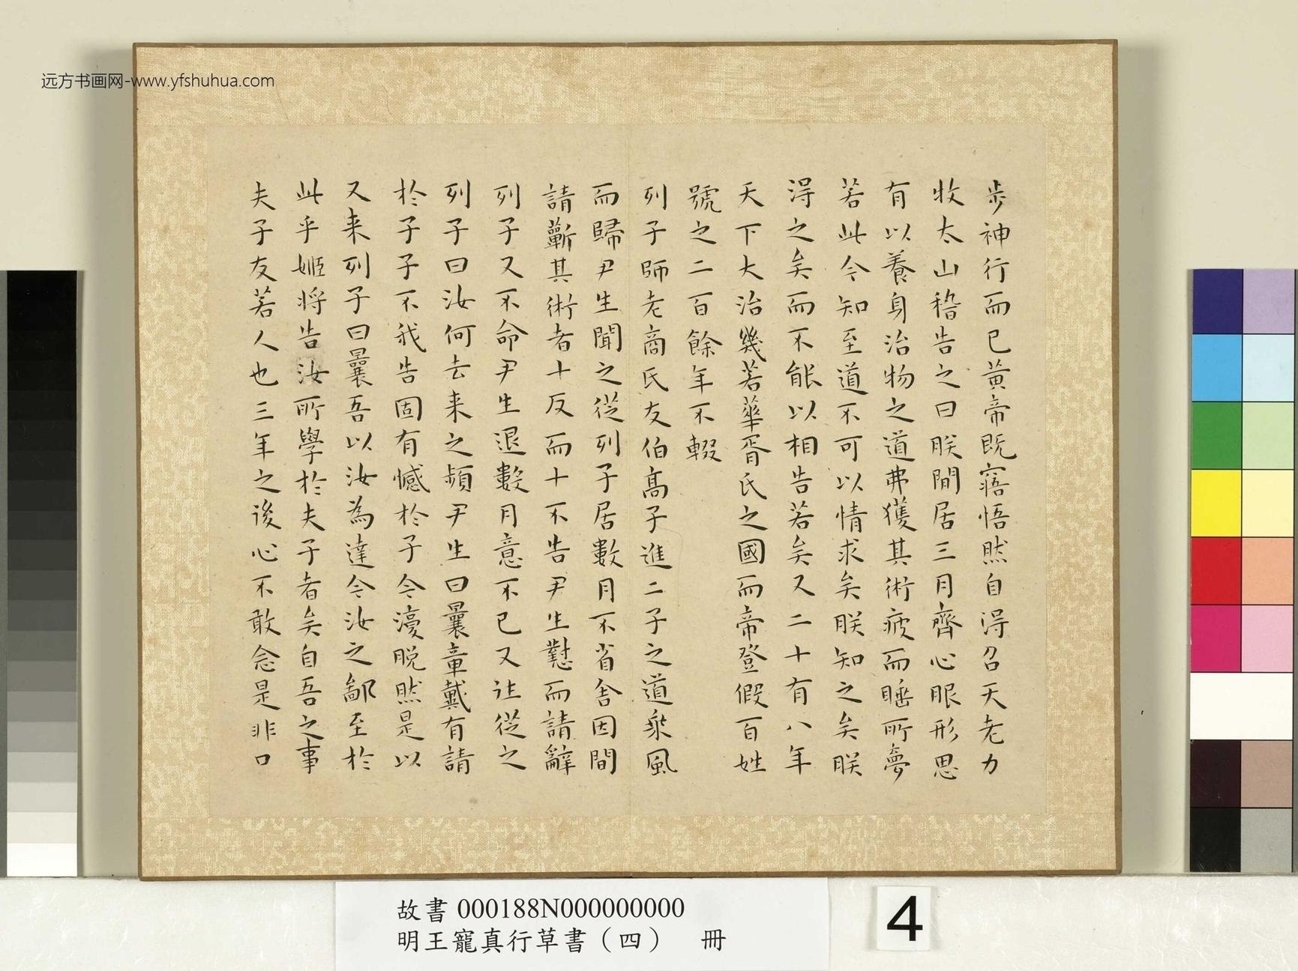 远方书画网-www.yfshuhua.com
步神行而已黃帝既寤悟然自淂召天老力
牧太山稽告之曰朕閒居三月齊心眼形思
有以養身治物之道弗獲其術疲而睡所夢
若此今知至道不可以情求矣朕知之矣朕
淂之矣而不能以相告若矣又二十有八年
天下大治幾若華胥氏之國而帝登假百姓
號之二百餘年不輟
列子師老商氏友伯髙子進二子之道乘風
而歸尹生聞之從列子居數月不省舍因間
請蘄其術者十反而十不告尹生懟而請辭
列子又不命尹生退數月意不已又往從之
列子曰汝何去来之頻尹生曰曩章戴有請
於子子不我告固有憾於子今濅脫然是以
又来列子曰曩吾以汝為達今汝之鄙至於
此乎姬将告汝所學於夫子者矣自吾之事
夫子友若人也三年之後心不敢念是非口
故書 000188N000000000
明王寵真行草書（四） 冊
4